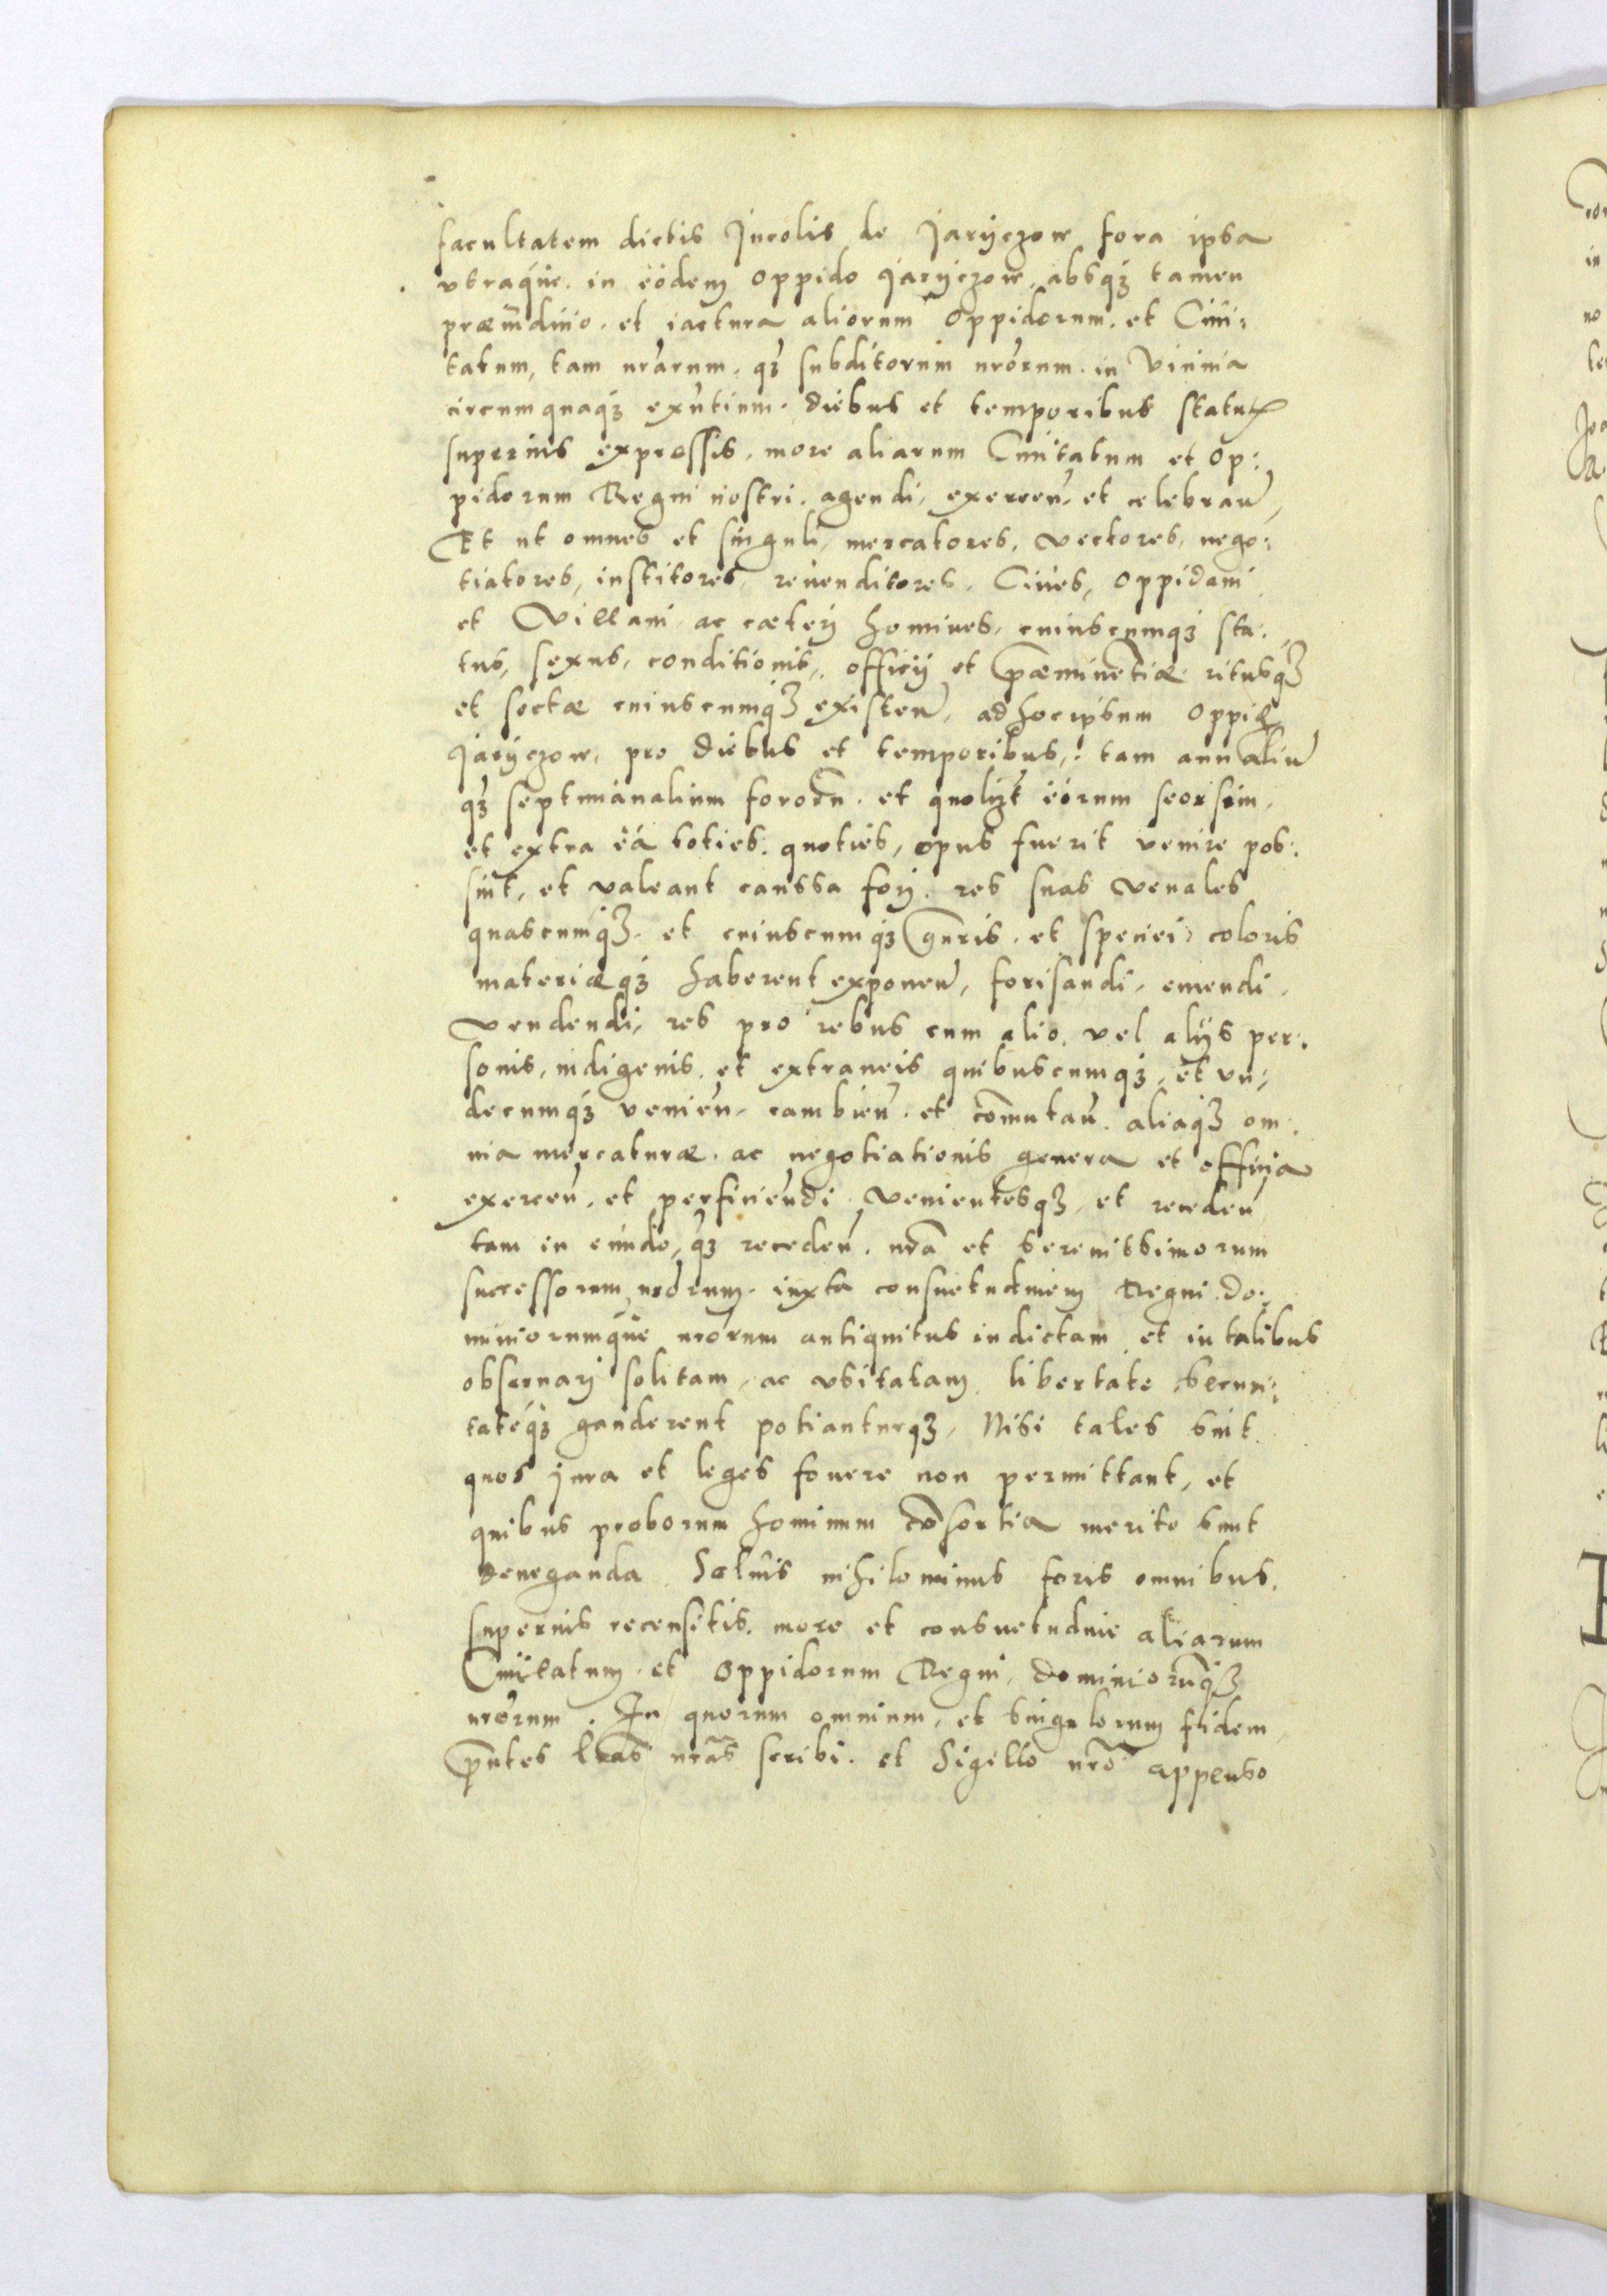 facultatem dictis Incolis de Jaryczow fora ipsa
vtraque. in eodem oppido Jaryczow, absqꝫ tamen
præiudicio. et iactura aliorum Oppidorum. et Ciui:
tatum, tam nrarum. qꝫ subditorum nrorum. in vicinia
circumquaqꝫ exntium. diebus et temporibus statutꝭ
superius expressis. more aliarum Ciuitatum et Op:
pidorum Regni nostri. agendi, exercen. et celebran,
Et ut omnes et singuli, mercatores, vectores, nego:
tiatores, institores, reuenditores. Ciues, Oppidani
et Villani. ac cæterj homines, cuiuscumqꝫ sta:
tus, sexus, conditionis, officij et p̃æminetiæ ritusqꝫ
et sectæ cuiuscumqꝫ existen, ad hoc ipsum oppid
Jaryczow, pro diebus et temporibus, tam annaliu
qꝫ septimanalium fororu. et quolizt eorum seorsim,
et extra ea toties quoties, opus fuerit venire pos:
sint, et valeant caussa forj. res suas venales
quascumqꝫ. et cuiuscumqꝫ gnris. et speciei, coloris
materiæqꝫ haberent exponen, forisandi, emendi,
vendendi, res pro rebus cum alio, vel alijs per:
sonis, indigenis. et extraneis quibuscumqꝫ, et vn:
decumqꝫ venien, cambien. et comutan. aliaqꝫ om:
nia mercaturæ. ac negotiationis genera et officia
exercen. et perficiendi venientesqꝫ, et receden
tam in eundo, qꝫ receden. nra et serenissimorum
successorum nrorum. iuxta consuetudinem Regni do:
miniorumque nrorum antiquitus indictam et in talibus
obseruarj solitam, ac vsitatam libertate securi:
tateqꝫ gauderent potianturqꝫ, Nisi tales sint
quos jura et leges fouere non permittant, et
quibus proborum hominum cõsortia merito sunt
deneganda Saluis nihilominus foris omnibus.
superius recensitis. more et consuetudine aliarum
Ciuitatum. et Oppidorum Regni, dominiorũqꝫ
nrorum. In quorum omnium, et singulorum fidem
p̃ntes lras nras scribi. et Sigillo nro appenso